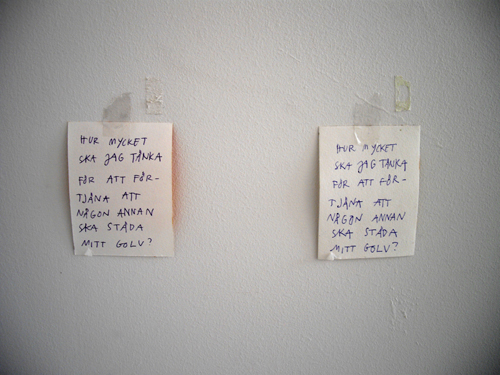 HUR MYCKET
SKA JAG TÄNKA
FÖR ATT FÖR-
TJÄNA ATT
NÅGON ANNAN
SKA STÄDA
MITT GOLV?
HUR MYCKET
SKA JAG TÄNKA
FÖR ATT FÖR-
TJÄNA ATT
NÅGON ANNAN
SKA STÄDA
MITT GOLV?